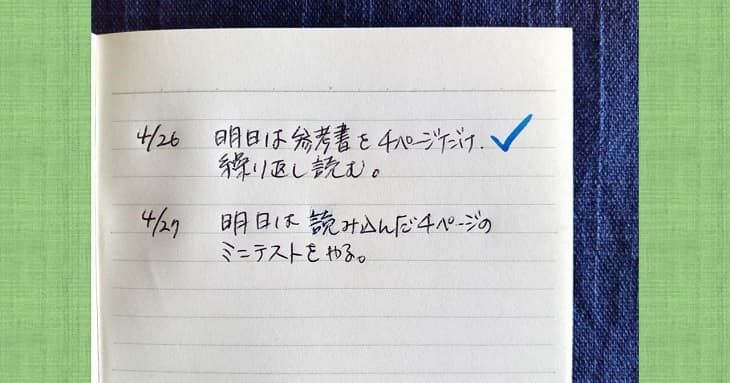 4/26 明日は参考書を4ページだけ、
繰り返し読む。
4/27 明日は読み込んだ4ページの
ミニテストをやる。